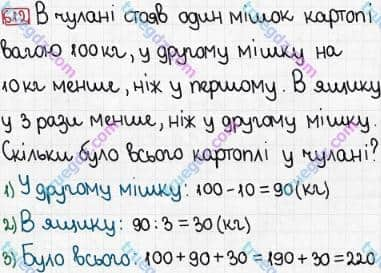 612) В чулані стояв один мішок картопі
вагою 100 кг, у другому мішку на
10 кг менше, ніж у першому. В ящику
у 3 рази менше, ніж у другому мішку.
Скільки було всього картоплі у чулані?
1) У другому мішку: 100-10=90(кг)
2) В ящику: 90:3=30(кг)
3) Було всього: 100+90+30=190+30=220